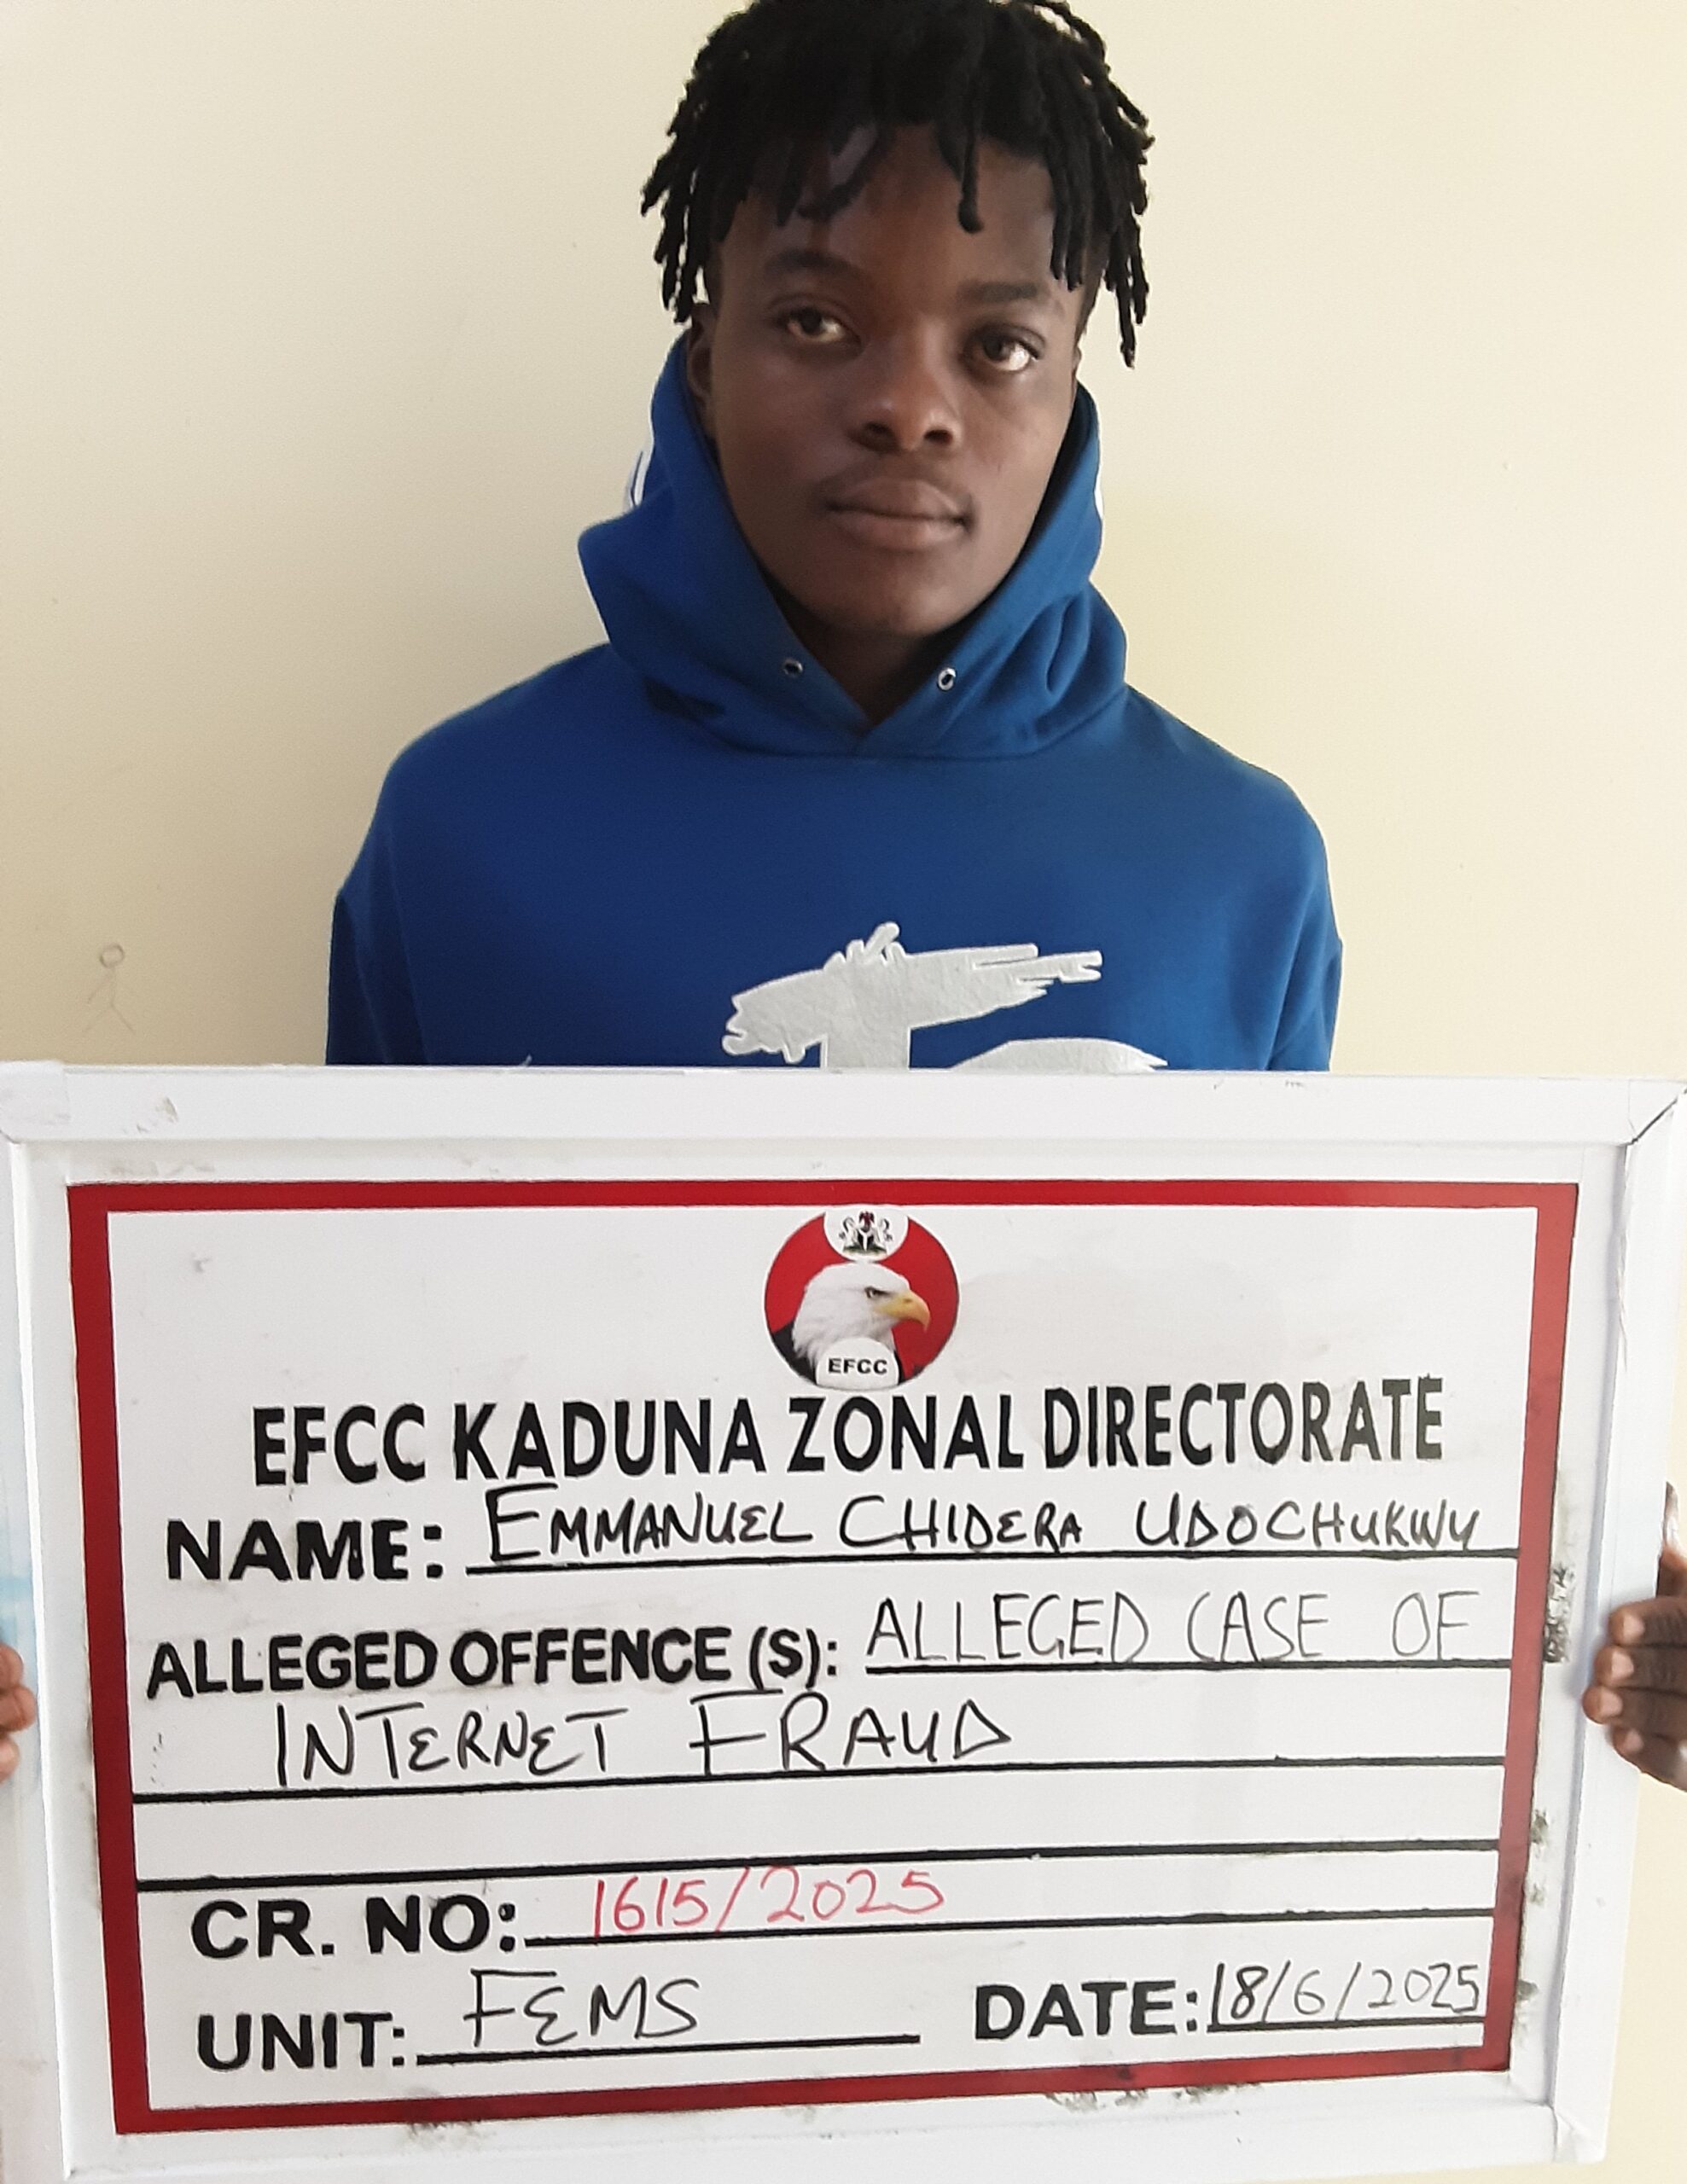 EFCC
EFCC KADUNA ZONAL DIRECTORATE
NAME: EMMANUEL CHIDERA UDOCHUKWU
ALLEGED OFFENCE (S): ALLEGED CASE OF
INTERNET FRAUD
CR. NO: 1615/2025
UNIT: FEMS DATE: 18/6/2025